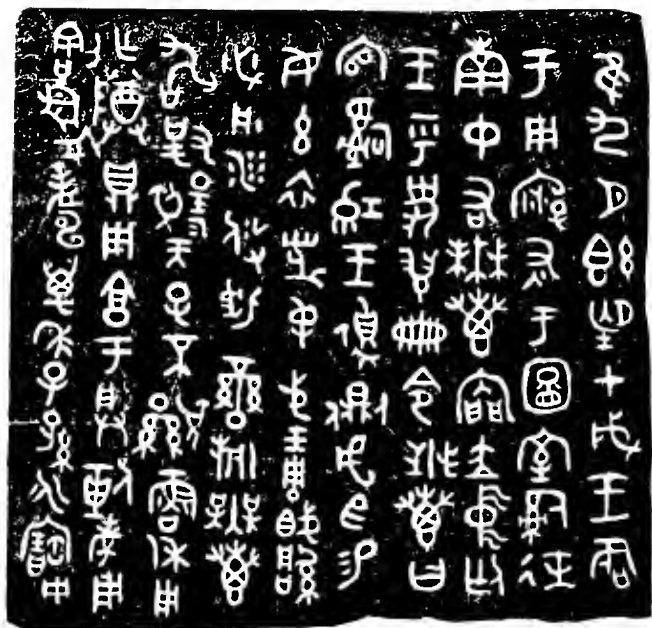 隹九月既望甲戌王各
于周廟述于圖室司徒
南中右無叀內門立中廷
王乎史翏冊令無叀曰
官司紅王遉側虎臣易
女玄衣黹屯戈琱㦰縞
必彤沙攸勒鑾旂無叀
敢對揚天子不顯魯休用
乍尊鼎用享于朕剌考用
割眉壽萬年子孫永寶用